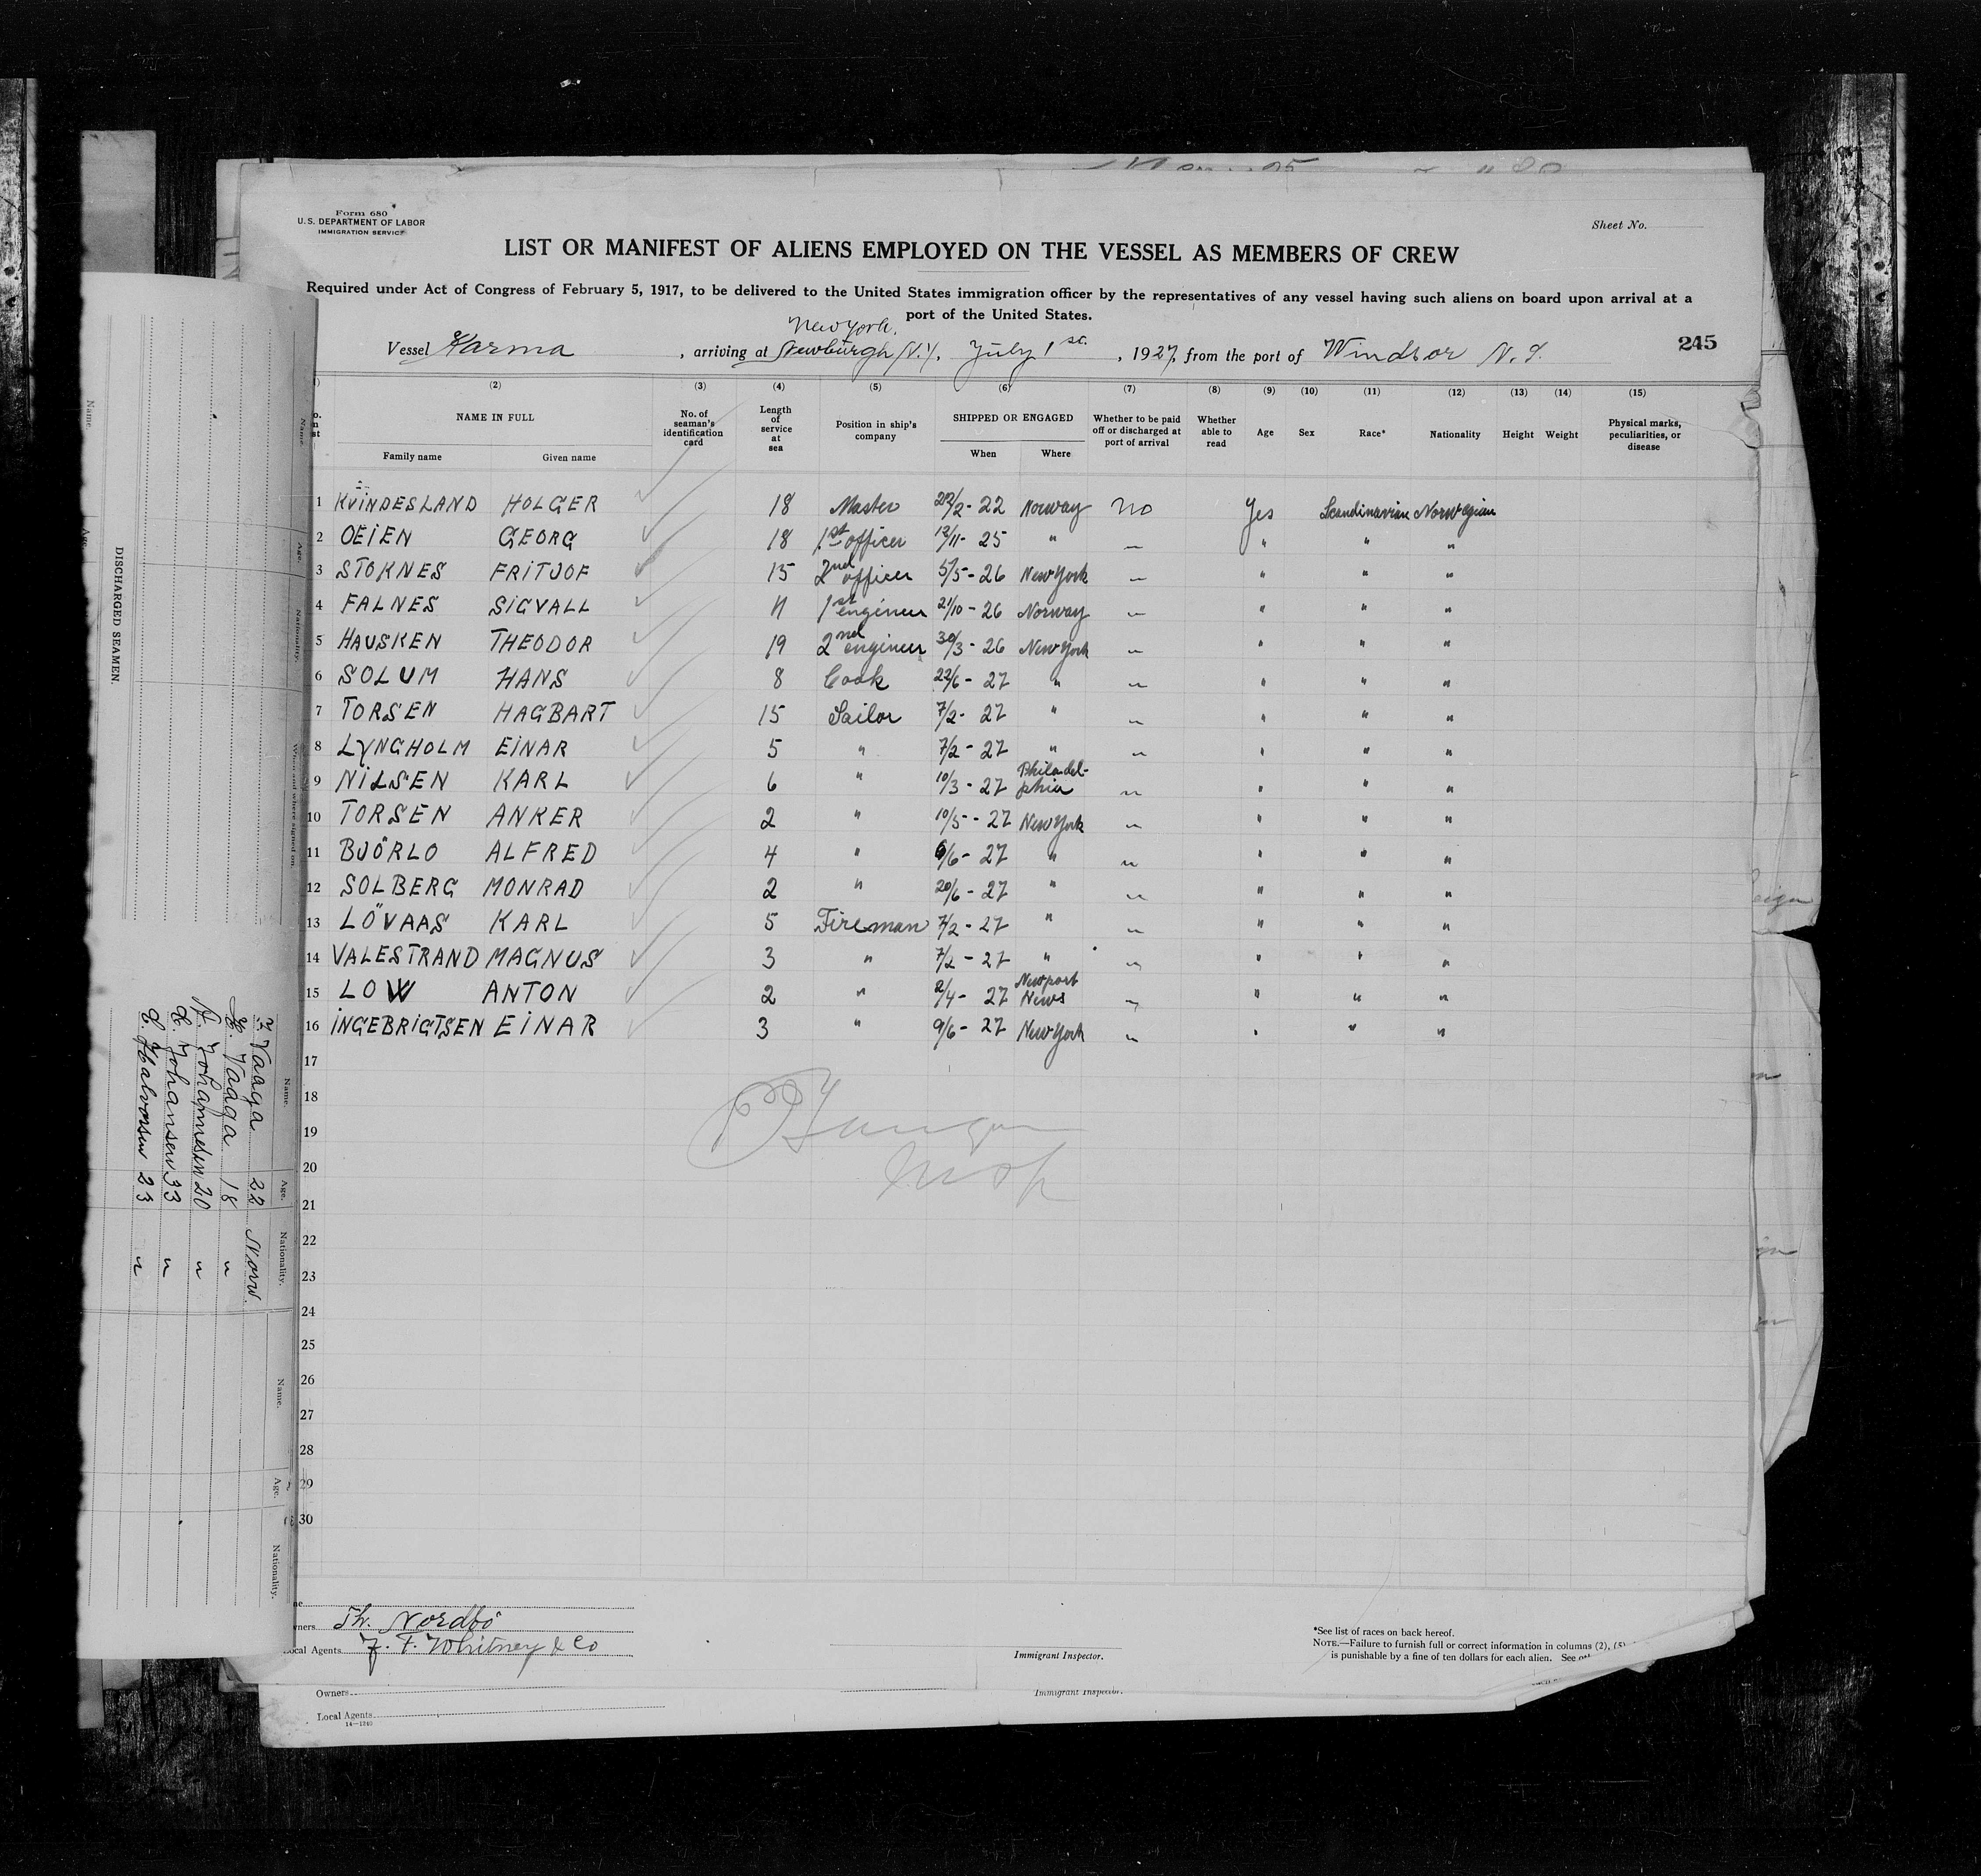 Form 680
U.S. DEPARTMENT OF LABOR
IMMIGRATION SERVICE
Sheet No.
LIST OR MANIFEST OF ALIENS EMPLOYED ON THE VESSEL AS MEMBERS OF CREW
Required under Act of Congress of February 5, 1917, to be delivered to the United States immigration officer by the representatives of any vessel having such aliens on board upon arrival at a
port of the United States.
New York.
Vessel Karma, arriving at Newburgh N.Y. July 1st., 1927, from the port of Windsor N.S.
245
(2) (3) (4) (5) (6) (7) (8) (9) (10) (11) (12) (13) (14) (15)
NAME IN FULL
Family name Given name
No. of seaman's identification card
Length of service at sea
Position in ship's company
SHIPPED OR ENGAGED
When Where
Whether to be paid off or discharged at port of arrival
Whether able to read
Age
Sex
Race*
Nationality
Height
Weight
Physical marks, peculiarities, or disease
1 KVINDESLAND HOLGER 18 Master 22/2-22 Norway No Yes Scandinavian Norwegian
2 OEIEN GEORG 18 1st officer 12/11-25 " " " " "
3 STOKNES FRITJOF 15 2nd officer 5/5-26 New York " " " "
4 FALNES SIGVALL 11 1st engineer 21/10-26 Norway " " " "
5 HAUSKEN THEODOR 19 2nd engineer 30/3-26 New York " " " "
6 SOLUM HANS 8 Cook 22/6-27 " " " " "
7 TORSEN HAGBART 15 Sailor 7/2-27 " " " " "
8 LYNGHOLM EINAR 5 " 7/2-27 " " " " "
9 NILSEN KARL 6 " 10/3-27 Philadelphia " " " "
10 TORSEN ANKER 2 " 10/5-27 New York " " " "
11 BJÖRLO ALFRED 4 " 6/6-27 " " " " "
12 SOLBERG MONRAD 2 " 20/6-27 " " " " "
13 LÖVAAS KARL 5 Fireman 7/2-27 " " " " "
14 VALESTRAND MAGNUS 3 " 7/2-27 " " " " "
15 LOW ANTON 2 " 2/4-27 Newport News " " " "
16 INGEBRIGTSEN EINAR 3 " 9/6-27 New York " " " "
17
18
19
20
21
22
23
24
25
26
27
28
29
30
Insp
Owners Th. Nordbö
Local Agents F. T. Whitney & Co
Immigrant Inspector.
*See list of races on back hereof.
NOTE.—Failure to furnish full or correct information in columns (2), (5)
is punishable by a fine of ten dollars for each alien. See
Owners
Local Agents
14—1240
Immigrant Inspector.
DISCHARGED SEAMEN.
Name. Age. Nationality. When and where signed on.
Name. Age. Nationality.
Vaaga 22 Norw.
Vaaga 18 "
Johannesen 20 "
Johansen 33 "
Halvorsen 23 "
Name. Age. Nationality.